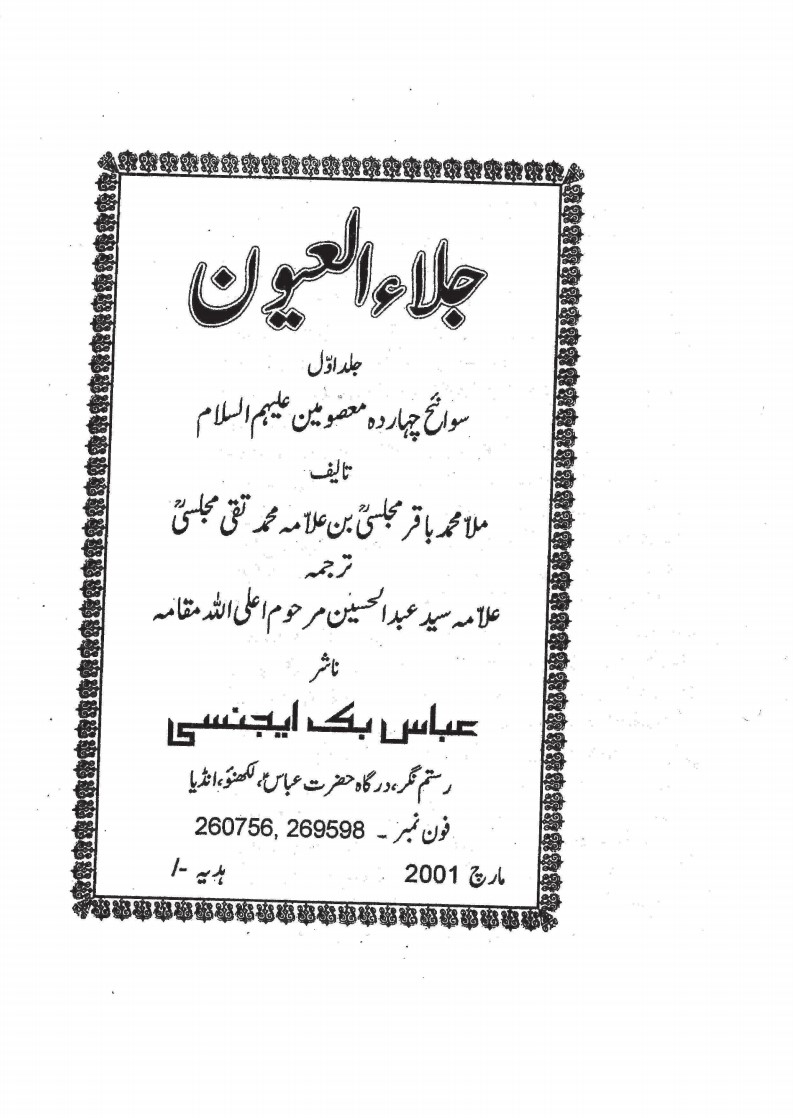 جلاء العیون
جلد اوّل
سوانح چہاردہ معصومین علیہم السلام
تالیف
ملا محمد باقر مجلسیؒ بن علاّمہ محمد تقی مجلسیؒ
ترجمہ
علاّمہ سید عبدالحسین مرحوم اعلی اللہ مقامہ
ناشر
عباس بک ایجنسی
رستم نگر، درگاہ حضرت عباسؑ، لکھنؤ، انڈیا
فون نمبر ـ 260756, 269598
مارچ 2001 ہدیہ -/